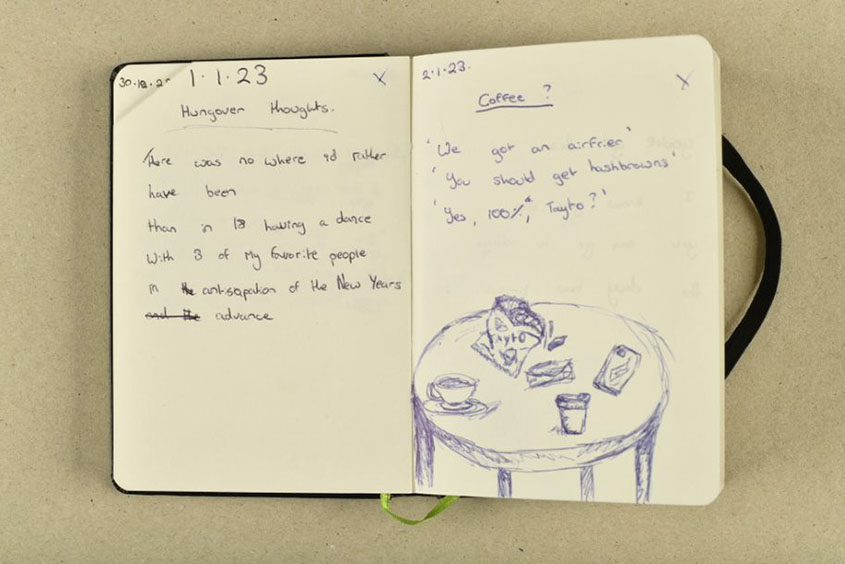 30.12.22
1.1.23
X
Hungover thoughts.
There was no where id rather
have been
than in 18 having a dance
with 3 of my favorite people
in the antisapation of the New Years
and the advance
2.1.23.
X
Coffee ?
'We got an airfrier'
'You should get hashbrowns'
'Yes, 100%, Tayto?'
Tayto